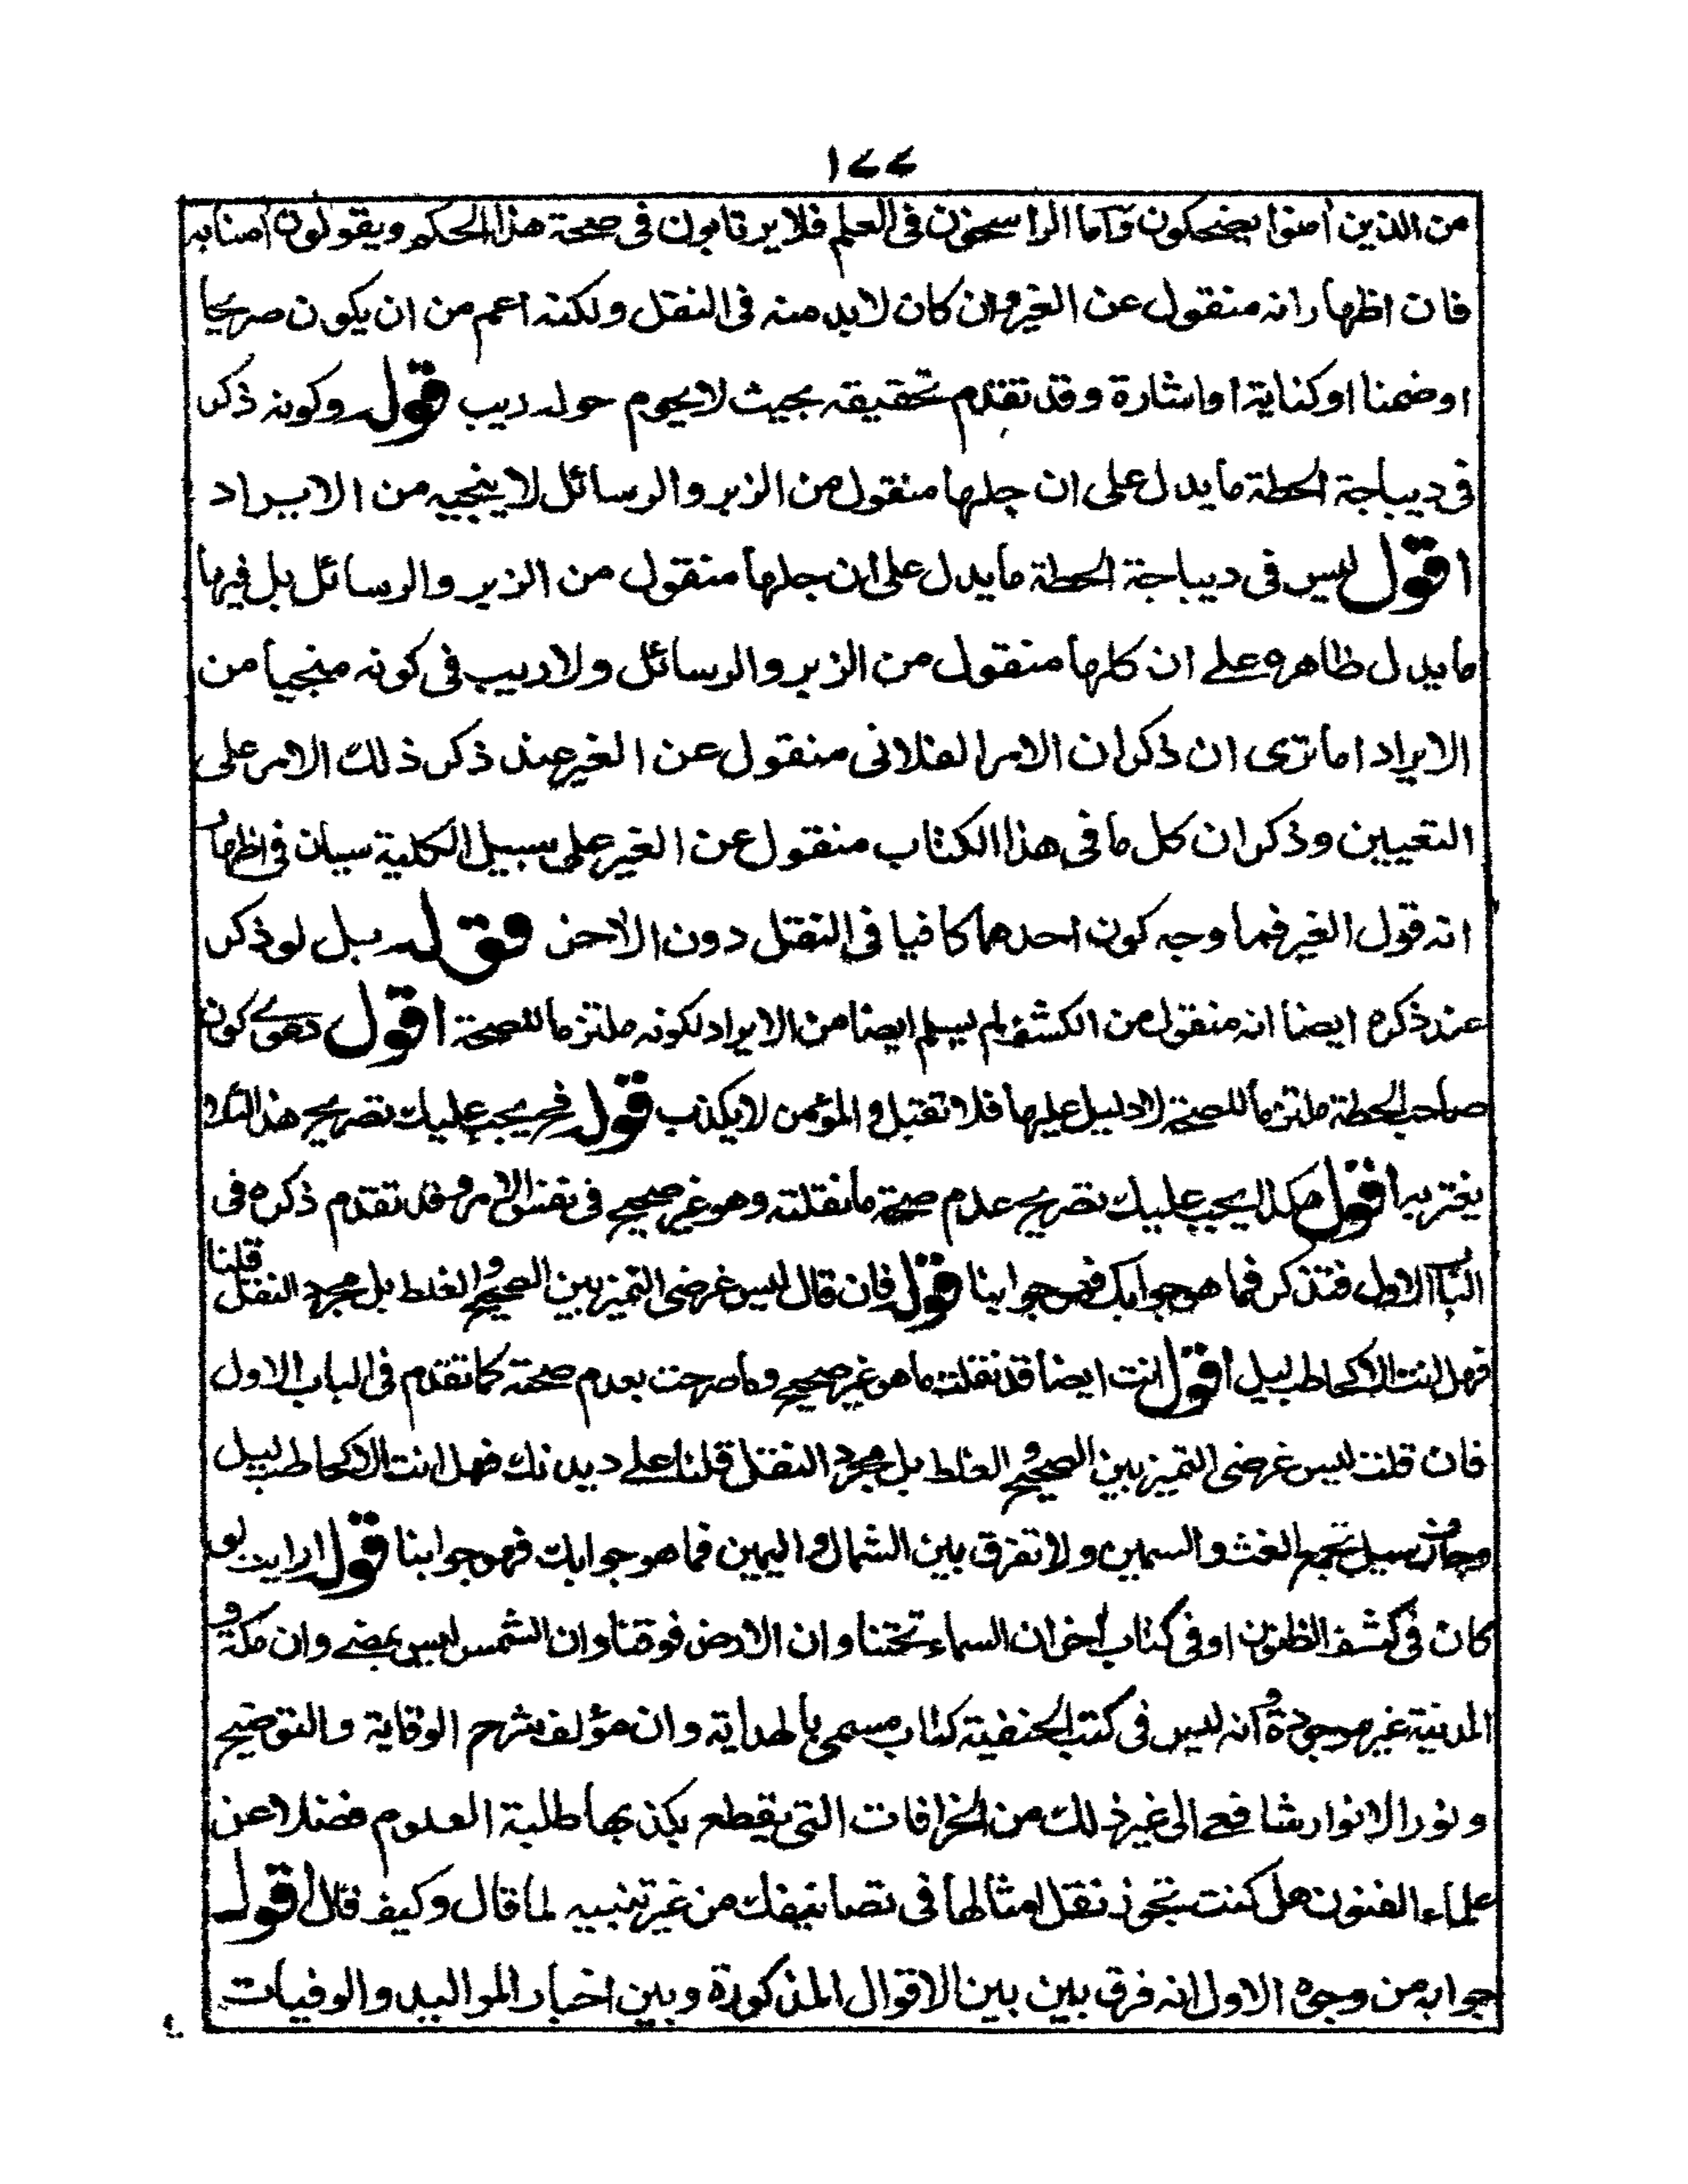 ١٧٧
من الذين أمنوا يضحكون وآما الراسخون فى العلم فلا يرتابون فى صحة هذا الحكم ويقولون أمنا به
فان اظهار انه منقول عن الغير وان كان لابد منه فى النقل ولكنه اعم من ان يكون صريحا
اوضمنا اوكناية اواشارة وقد تقدم تحقيقه بحيث لايحوم حوله ريب قوله وكونه ذكر
فى ديباجة الحطة مايدل على ان جلها منقول من الزبر والرسائل لاينجيه من الايراد
اقول ليس فى ديباجة الحطة مايدل على ان جلها منقول من الزبر والرسائل بل فيها
مايدل ظاهره على ان كلها منقول من الزبر والرسائل ولاريب فى كونه منجيا من
الايراد اماترى ان ذكر ان الامر الفلانى منقول عن الغير عند ذكر ذلك الامر على
التعيين وذكر ان كل ما فى هذا الكتاب منقول عن الغير على سبيل الكلية سيان فى اظهار
انه قول الغير فما وجه كون احدهما كافيا فى النقل دون الاخر قوله بل لو ذكر
عند ذكره ايضا انه منقول من الكشف لم يسلم ايضا من الايراد لكونه ملتزما للصحة اقول دعوى كون
صاحب الحطة ملتزما للصحة لادليل عليها فلا تقبل والمؤمن لايكذب قوله فح يجب عليك تصريح هذا لئلا
يغتر به اقول هكذا يجب عليك تصريح عدم صحة مانقلته وهو غير صحيح فى نفس الامر وقد تقدم ذكره فى
الباب الاول فتذكر فما هو جوابك فهو جوابنا قوله فان قال ليس غرضى التميز بين الصحيح والغلط بل مجرد النقل قلنا
فهل انت الا كحاطب ليل اقول انت ايضا قد نقلت ما هو غير صحيح وما صرحت بعدم صحته كما تقدم فى الباب الاول
فان قلت ليس غرضى التميز بين الصحيح والغلط بل مجرد النقل قلنا على ديدنك فهل انت الا كحاطب ليل
سيل تجمع الغث والسمين ولاتفرق بين الشمال واليمين فما هو جوابك فهو جوابنا قوله ارايت لو
كان فى كشف الظنون اوفى كتاب أخر ان السماء تحتنا وان الارض فوقنا وان الشمس ليس بمضى وان مكة و
المدنية غير موجودة وانه ليس فى كتب الحنفية كتاب مسمى بالهداية وان مؤلف شرح الوقاية والتوضيح
ونور الانوار شافعى الى غير ذلك من الخرافات التى يقطع بكذبها طلبة العلوم فضلا عن
علماء الفنون هل كنت تجوز نقل امثالها فى تصانيفك من غير تنبيه لما قال وكيف قال اقول
جوابه من وجوه الاول انه فرق بين بين الاقوال المذكورة وبين اخبار المواليد والوفيات